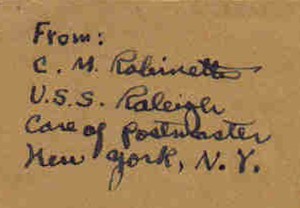 From:
C. M. Robinette
U.S.S. Raleigh
Care of Postmaster
New York, N.Y.